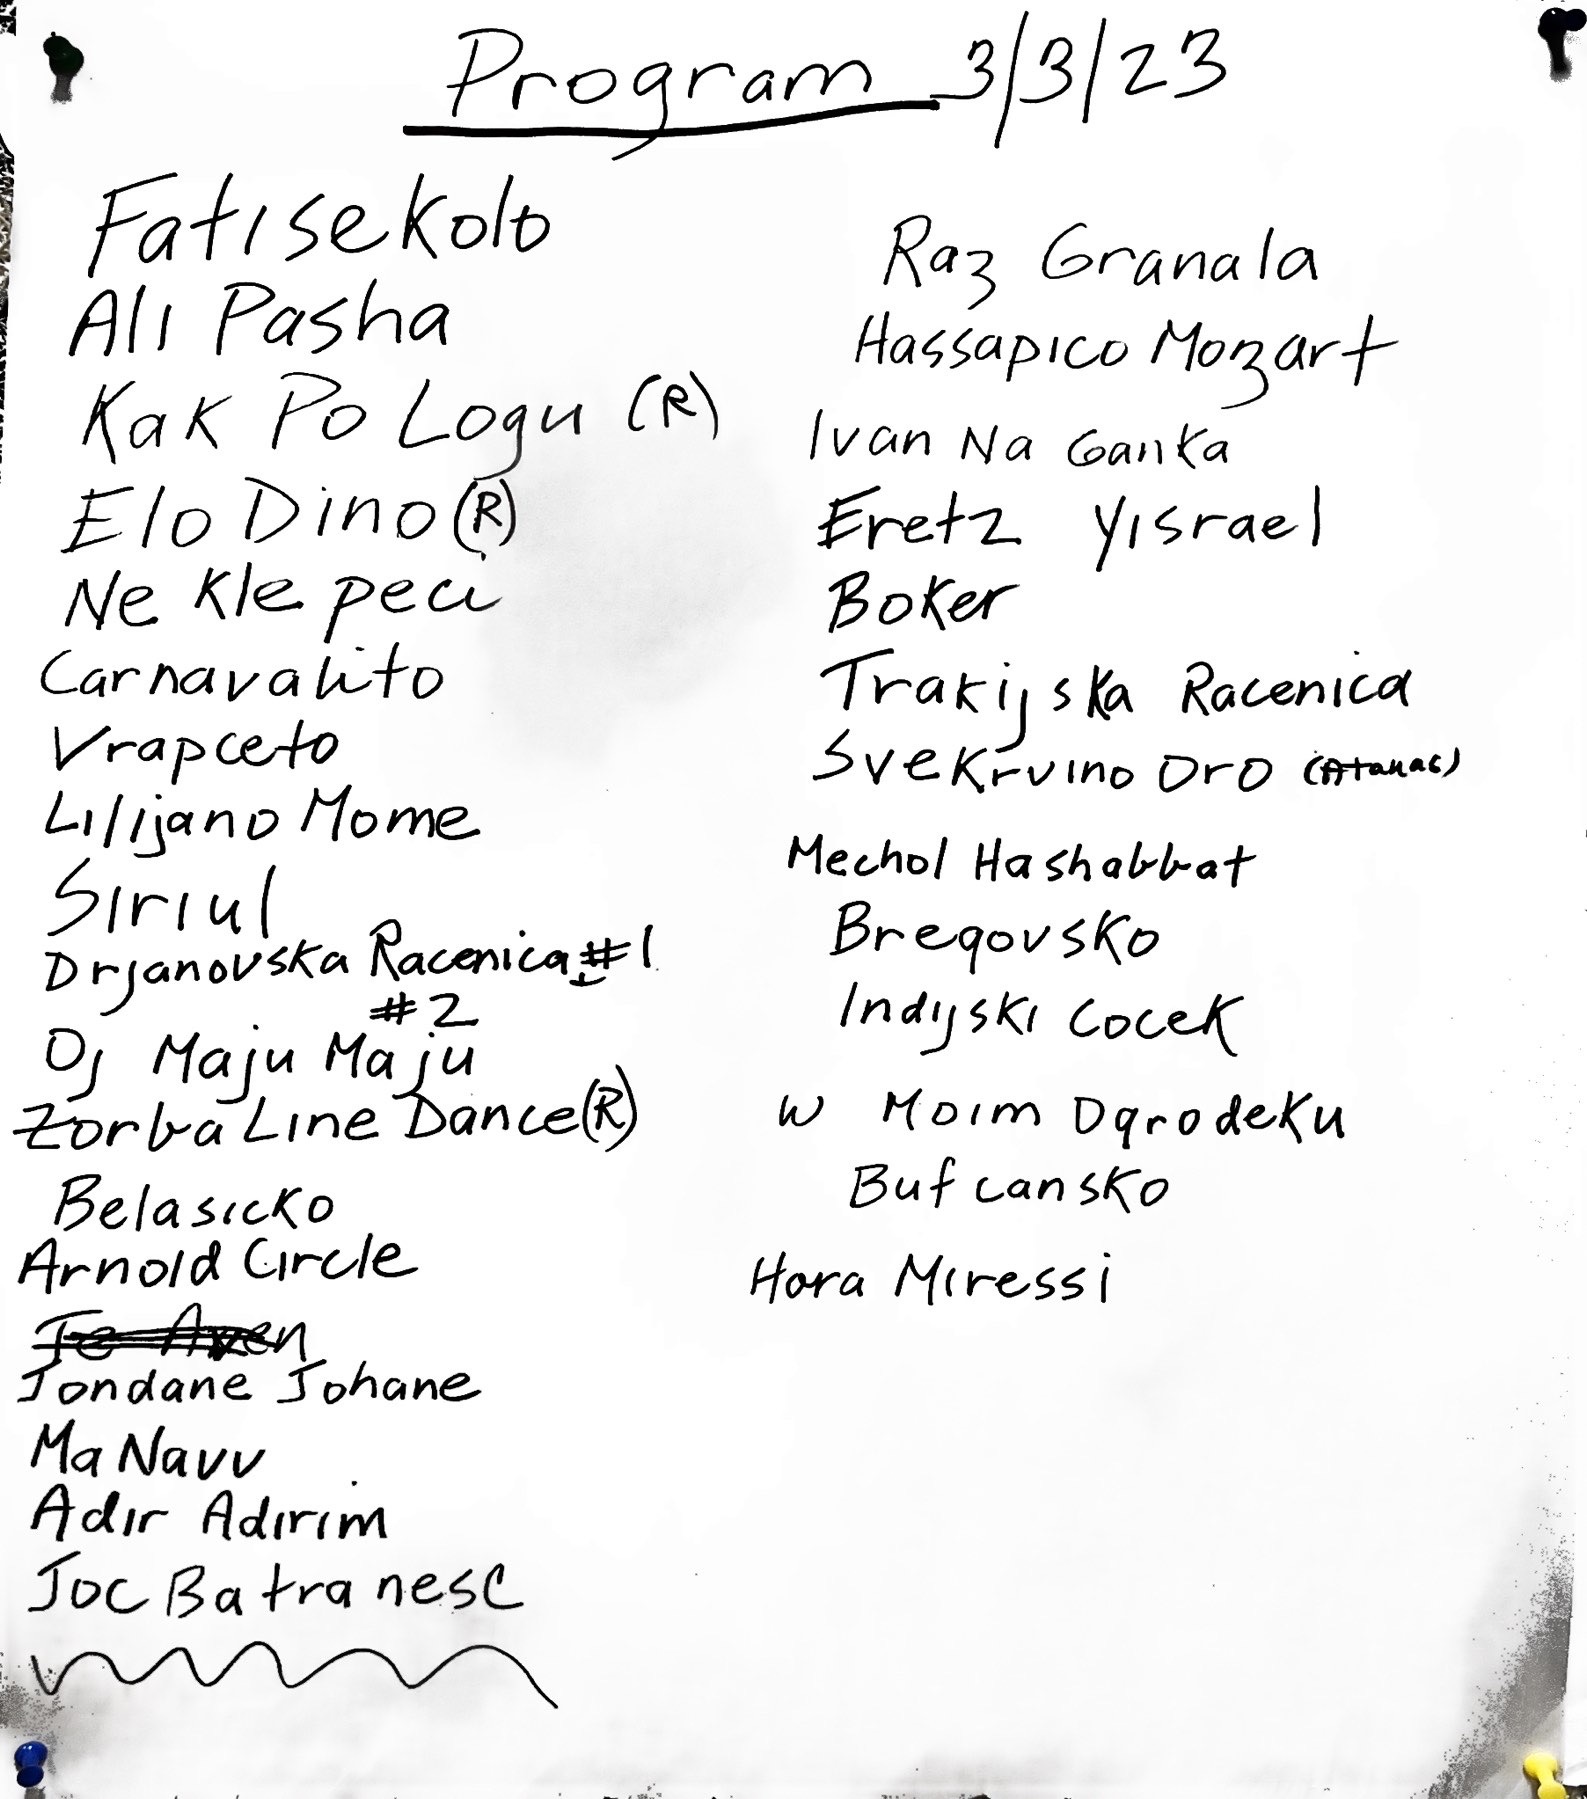 Program 3/3/23
Fatise Kolo
Ali Pasha
Kak Po Logu (R)
Elo Dino (R)
Ne Kle peci
Carnavalito
Vrapceto
Lilijano Mome
Siriul
Drjanovska Racenica #1
#2
Oj Maju Maju
Zorba Line Dance (R)
Belasicko
Arnold Circle
Te Aven
Jondane Johane
Ma Navu
Adir Adirim
Joc Batranesc
Raz Granala
Hassapico Mozart
Ivan Na Ganka
Eretz Yisrael
Boker
Trakijska Racenica
Svekrvino Oro (Atanas)
Mechol Hashabbat
Bregovsko
Indijski Cocek
W Moim Ogrodeku
Bufcansko
Hora Miressi